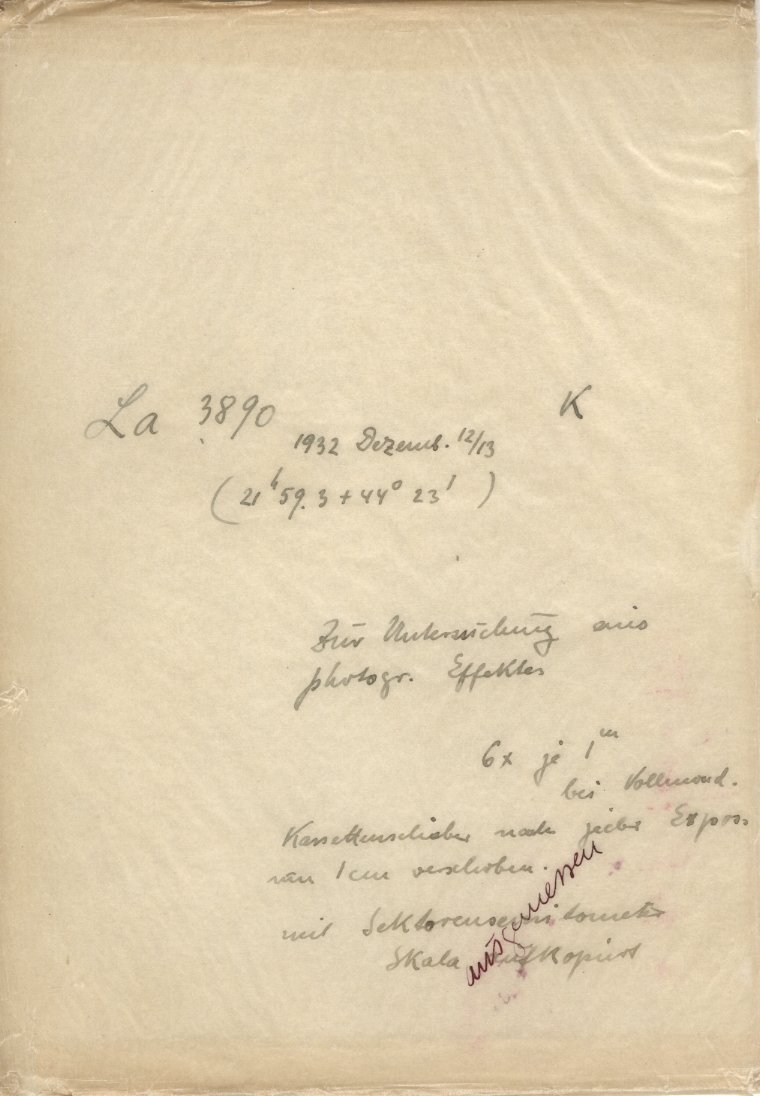 La 3890 K
1932 Dezemb. 12/13
(21h 59.3 + 44° 23')
Zur Untersuchung
photogr. Effektes
6x je 1m
bei Vollmond.
Kassettenschieber nach jeder Expos.
um 1cm verschoben.
mit Sektorensensitometer
Skala aufkopiert
ausgemessen